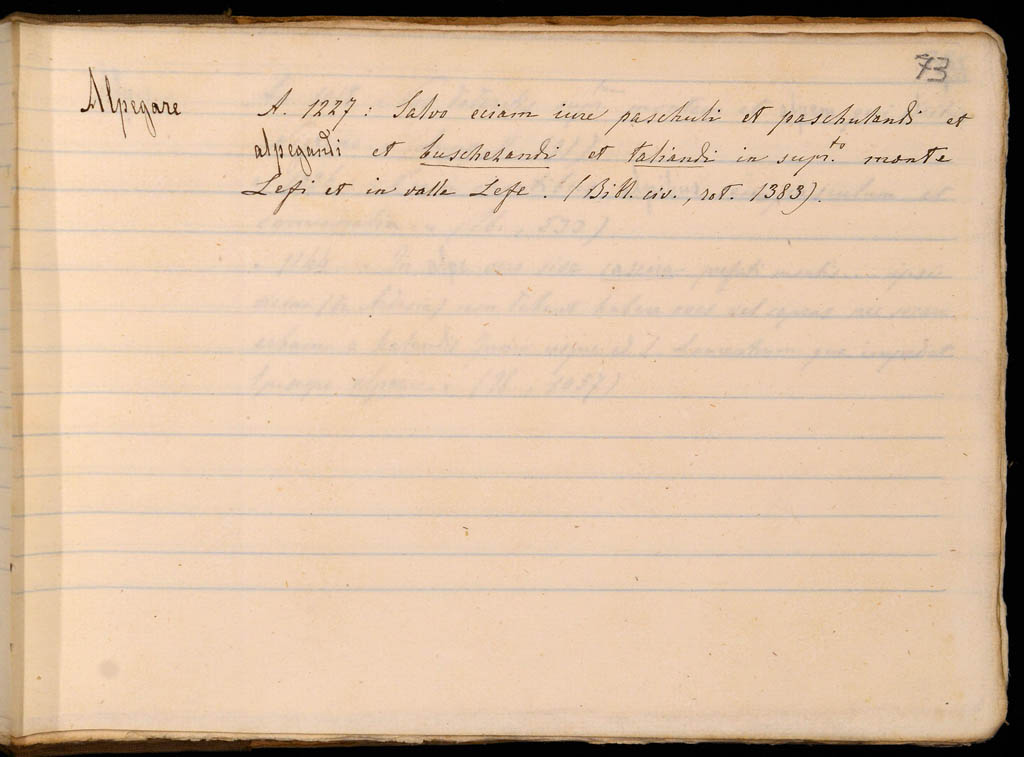 73
Alpegare
A. 1227 : Salvo eciam iure paschuli et paschulandi et
alpegandi et buschezandi et taliandi in supr.to monte
Lefi et in valle Lefe. (Bibl. civ., rot. 1383).